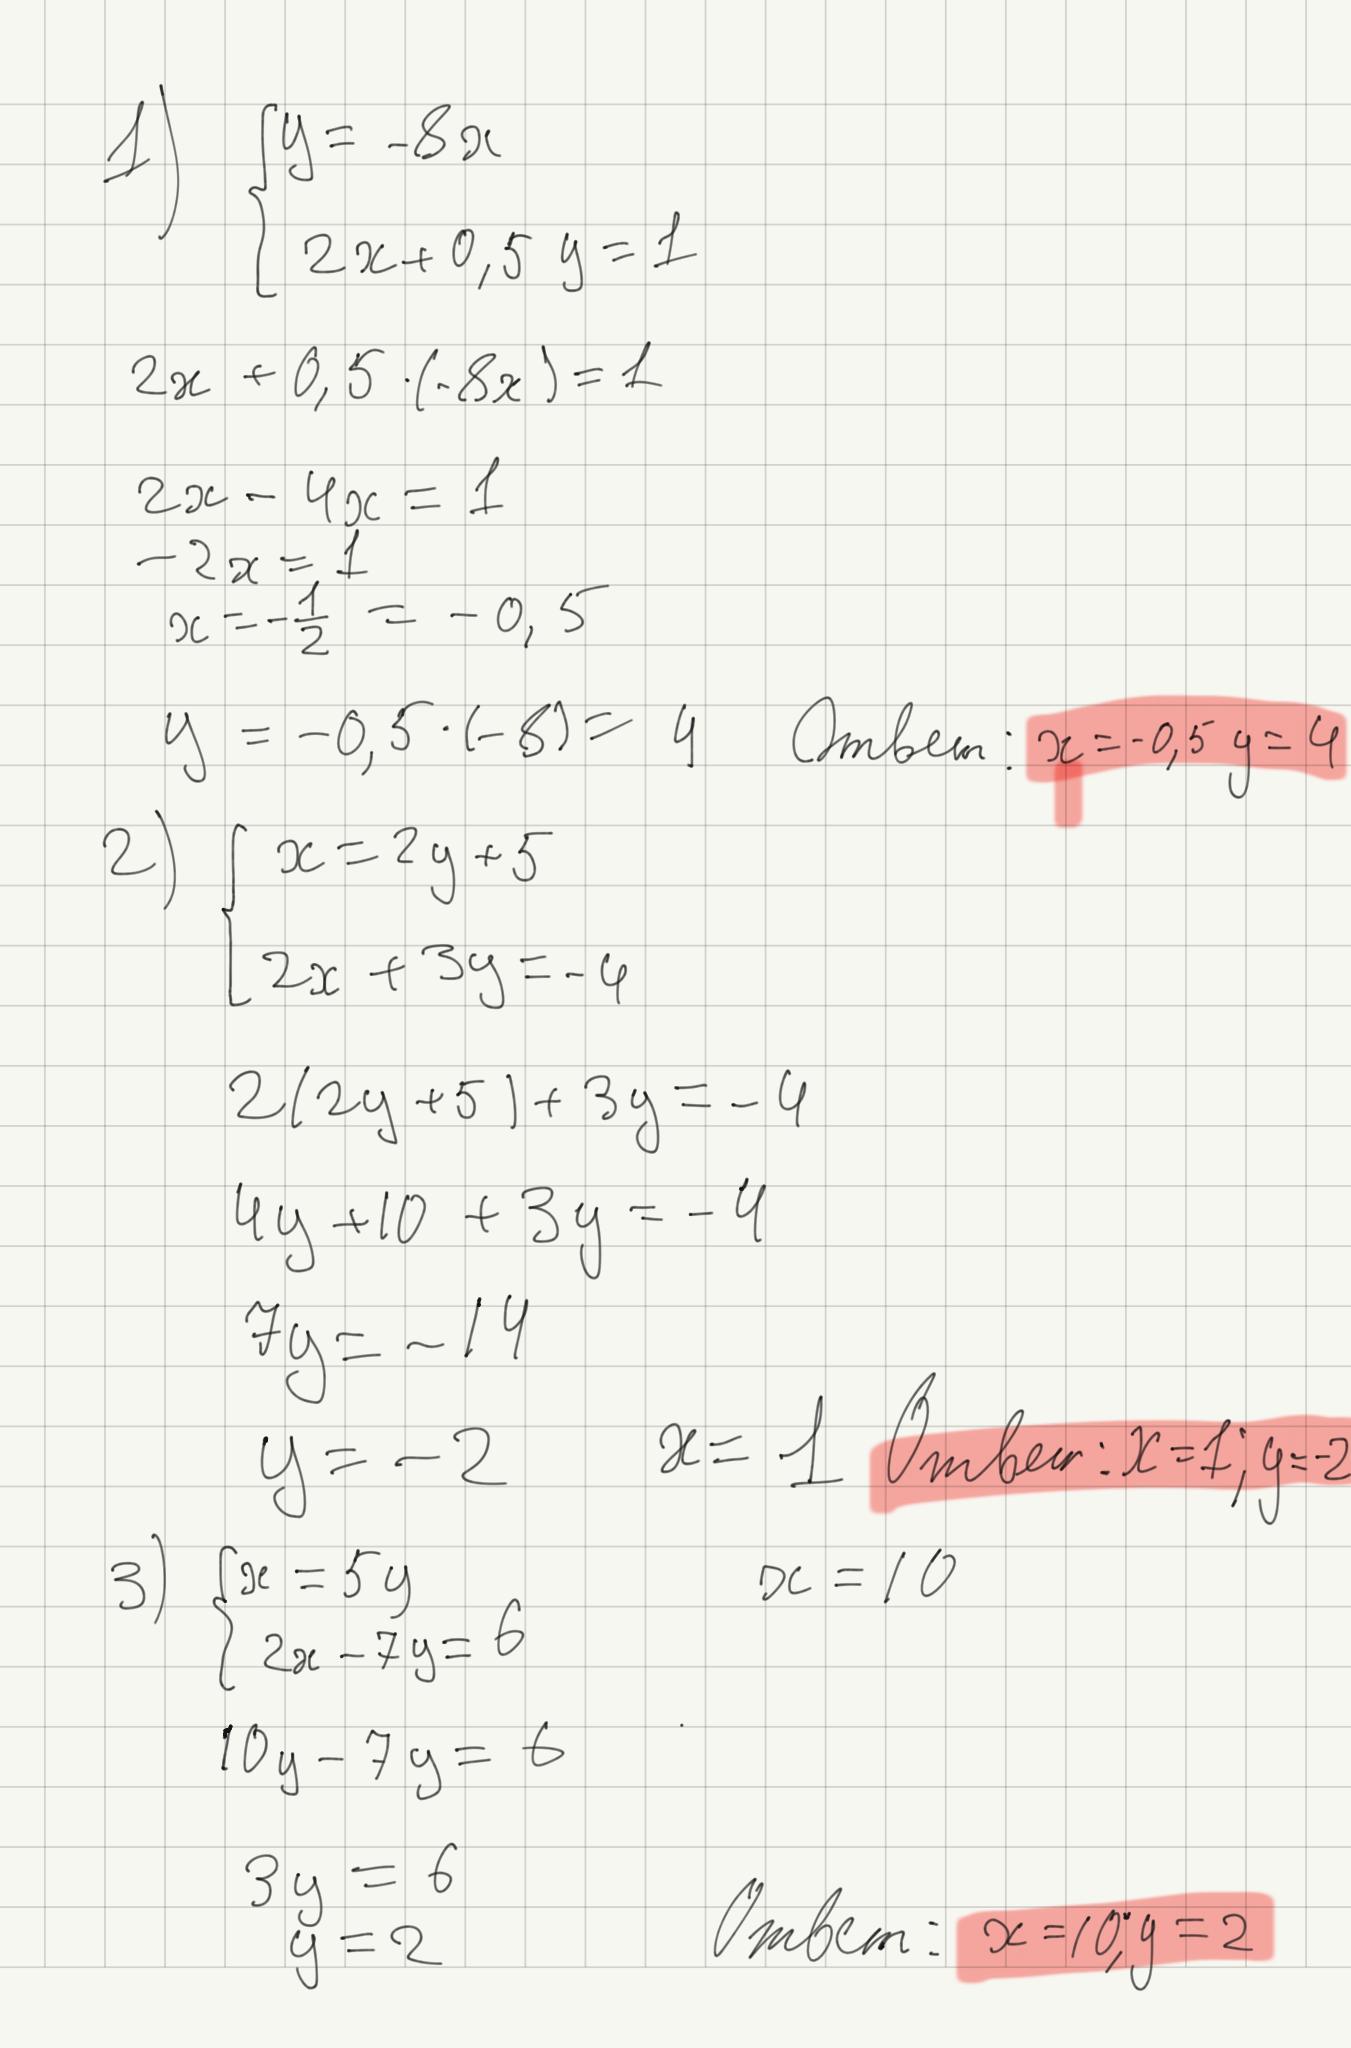 1) { y = -8x
2x + 0,5 y = 1
2x + 0,5 · (-8x) = 1
2x - 4x = 1
-2x = 1
x = -1/2 = -0,5
y = -0,5 · (-8) = 4 Ответ: x = -0,5 y = 4
2) { x = 2y + 5
2x + 3y = -4
2(2y + 5) + 3y = -4
4y + 10 + 3y = -4
7y = -14
y = -2 x = 1 Ответ: x = 1; y = -2
3) { x = 5y x = 10
2x - 7y = 6
10y - 7y = 6
3y = 6
y = 2 Ответ: x = 10; y = 2